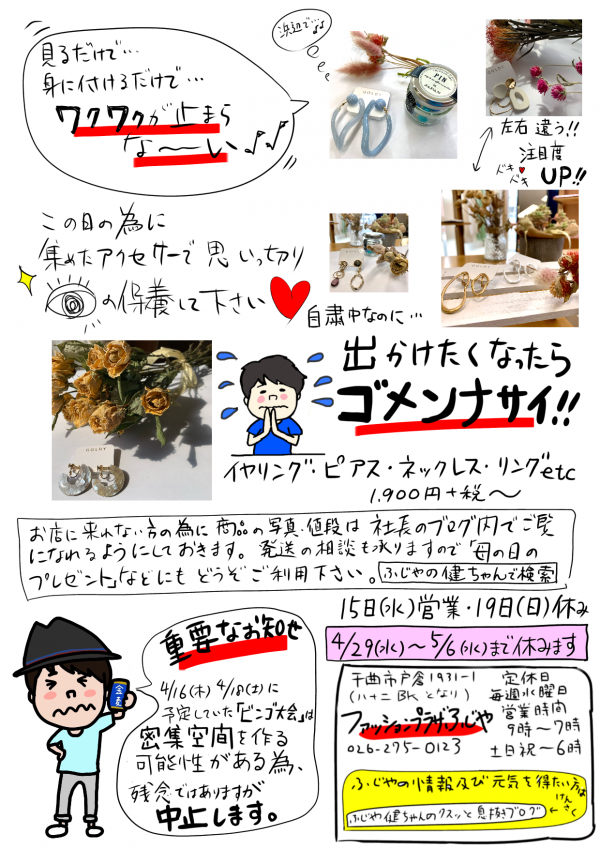 見るだけで…
身に付けるだけで…
ワクワクが止まら
な〜い♪♪
浜辺で…♪♪
PIN
JAPAN
GOLDY
左右違う!!
注目度
ドキ♥ドキ UP!!
この日の為に
集めたアクセサリーで思いっつきり
の保養して下さい♥
自粛中なのに…
出かけたくなったら
ゴメンナサイ!!
GOLDY
イヤリング・ピアス・ネックレス・リングetc
1,900円+税〜
お店に来れない方の為に商品の写真・値段は社長のブログ内でご覧
になれるようにしておきます。発送の相談も承りますので「母の日の
プレゼント」などにもどうぞご利用下さい。ふじやの健ちゃんで検索
15日(水)営業・19日(日)休み
4/29(水)〜5/6(水)まで休みます
重要なお知せ
4/16(木) 4/18(土)に
予定していた「ビンゴ大会」は
密集空間を作る
可能性がある為、
残念ではありますが
中止します。
金麦
千曲市戸倉1931-1
(八十二BKとなり)
ファッションプラザふじや
026-275-0123
定休日
毎週水曜日
営業時間
9時〜7時
土日祝〜6時
ふじやの情報及び元気を得たい方は
けんさく
ふじや健ちゃんのクスッと息抜きブログ